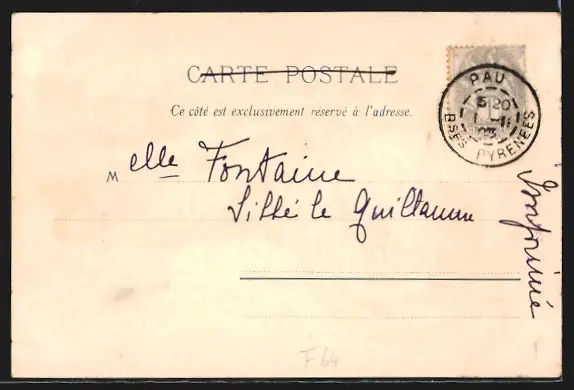 CARTE POSTALE
Ce côté est exclusivement réservé à l'adresse.
PAU
5 20
BSES PYRENEES
Melle Fontaine
Sillé le Guillaume
Imprimé
F 64